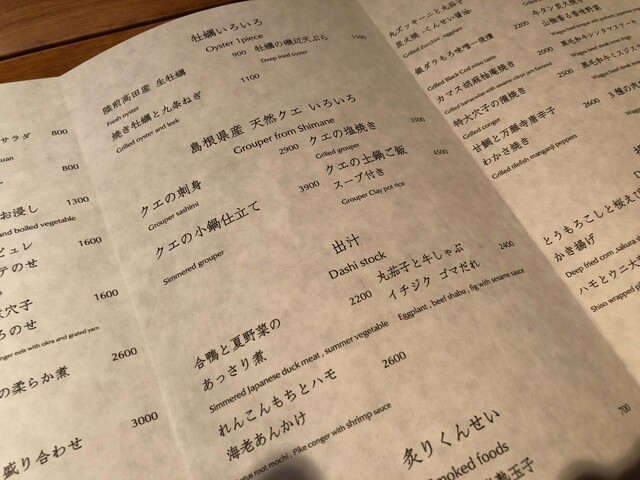 サラダ 800
800
お浸し 1300
and boiled vegetable
ピュレ 1600
のせ
穴子 1600
ろのせ
conger eels with okra and grated yam
の柔らか煮 2600
盛り合わせ 3000
牡蠣いろいろ
Oyster 1piece
陸前高田産 生牡蠣 900
Fresh oyster
牡蠣の磯辺天ぷら 1100
Deep fried oyster
焼き牡蠣と九条ねぎ 1100
Grilled oyster and leek
島根県産 天然クエ いろいろ
Grouper from Shimane
クエの刺身 2900
Grouper sashimi
クエの塩焼き 3500
Grilled grouper
クエの小鍋仕立て 3900
Simmered grouper
クエの土鍋ご飯 4500
スープ付き
Grouper Clay pot rice
出汁
Dashi stock
合鴨と夏野菜の 2200
あっさり煮
Simmered Japanese duck meat , summer vegetable
丸茄子と牛しゃぶ 2400
イチジク ゴマだれ
Eggplant , beef shabu , fig with sesame sauce
れんこんもちとハモ 2600
海老あんかけ
root mochi , Pike conger with shrimp sauce
炙りくんせい
moked foods
700
丸ズッキーニと丸茄子
炭火焼 くんせい醤油 2200
Grilled Zucchini , eggplant
銀ダラもろ味噌一夜漬 2400
Grilled Black Cod miso taste
カマス胡麻柚庵焼き 2500
特大穴子の蒲焼き 2600
Grilled conger
甘鯛と万願寺唐辛子 2500
わかさ焼き
Grilled tilefish manganji peppers
牛タン炭火焼き
山椒香る香味野菜
黒毛和牛シンタマステーキ
黒毛和牛ミスジ
3種の肉
とうもろこしと桜えび
かき揚げ
Deep fried corn ,sakura s
ハモとウニ大
Shiso wrapped pi